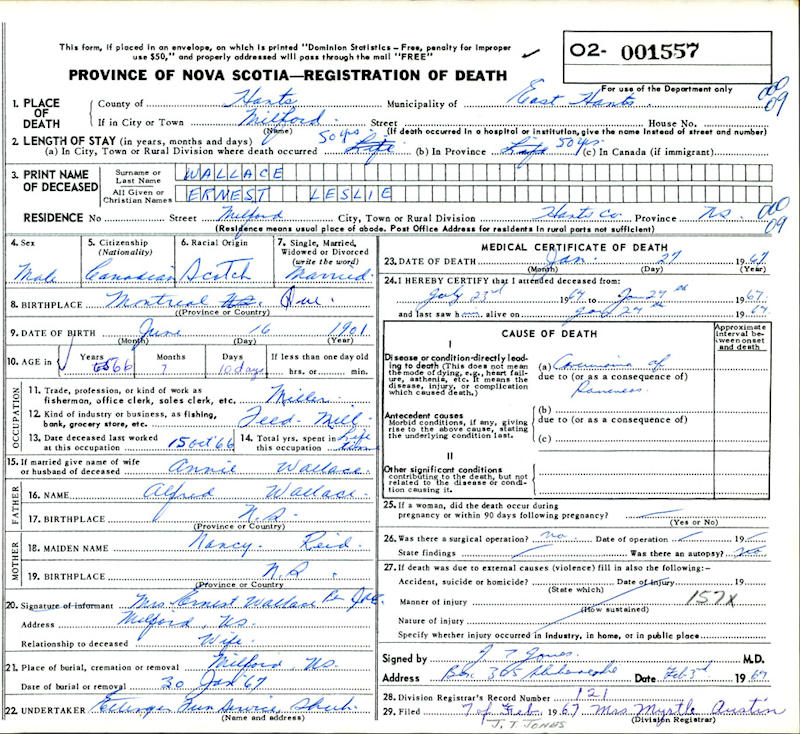 This form, if placed in an envelope, on which is printed "Dominion Statistics – Free, penalty for improper
use $50," and properly addressed will pass through the mail "FREE"
O2- 001557
PROVINCE OF NOVA SCOTIA—REGISTRATION OF DEATH
For use of the Department only
1. PLACE OF DEATH County of Hants Municipality of East Hants 000
If in City or Town Milford Street House No. 09
(Name) (If death occurred in a hospital or institution, give the name instead of street and number)
2. LENGTH OF STAY (in years, months and days) 50 yrs 50 yrs
(a) In City, Town or Rural Division where death occurred Life (b) In Province Life (c) In Canada (if immigrant)
3. PRINT NAME OF DECEASED Surname or Last Name WALLACE
All Given or Christian Names ERNEST LESLIE
RESIDENCE No Street Milford City, Town or Rural Division Hants Co Province NS. 000 09
(Residence means usual place of abode. Post Office Address for residents in rural parts not sufficient)
4. Sex Male
5. Citizenship (Nationality) Canadian
6. Racial Origin Scotch
7. Single, Married, Widowed or Divorced (write the word) Married
8. BIRTHPLACE Montreal Que.
(Province or Country)
9. DATE OF BIRTH June 16 1901
(Month) (Day) (Year)
10. AGE in Years 66 Months 7 Days 10 days If less than one day old
hrs. or min.
OCCUPATION
11. Trade, profession, or kind of work as fisherman, office clerk, sales clerk, etc. Miller
12. Kind of industry or business, as fishing, bank, grocery store, etc. Feed Mill
13. Date deceased last worked at this occupation 15 Oct 66 14. Total yrs. spent in this occupation Life time
15. If married give name of wife or husband of deceased Annie Wallace
FATHER
16. NAME Alfred Wallace
17. BIRTHPLACE N.S.
(Province or Country)
MOTHER
18. MAIDEN NAME Nancy Reid
19. BIRTHPLACE N.S.
(Province or Country)
20. Signature of informant Mrs Ernest Wallace Per
Address Milford, NS.
Relationship to deceased Wife
21. Place of burial, cremation or removal Milford NS.
Date of burial or removal 30 Jan '67
22. UNDERTAKER Ettinger Fun
(Name and address)
MEDICAL CERTIFICATE OF DEATH
23. DATE OF DEATH Jan. 27 1967
(Month) (Day) (Year)
24. I HEREBY CERTIFY that I attended deceased from:
July 23rd 1967 to Jan 27th 1967.
and last saw him alive on Jan 27th 1967
CAUSE OF DEATH
Approximate interval between onset and death
I
Disease or condition directly leading to death (This does not mean the mode of dying, e.g., heart failure, asthenia, etc. It means the disease, injury, or complication which caused death.)
(a) Carcinoma of
due to (or as a consequence of)
Pancreas
Antecedent causes
Morbid conditions, if any, giving rise to the above cause, stating the underlying condition last.
(b)
due to (or as a consequence of)
(c)
II
Other significant conditions contributing to the death, but not related to the disease or condition causing it.
25. If a woman, did the death occur during pregnancy or within 90 days following pregnancy?
(Yes or No)
26. Was there a surgical operation? no Date of operation 19
State findings Was there an autopsy? No
27. If death was due to external causes (violence) fill in also the following:–
Accident, suicide or homicide? Date of injury 19
(State which)
Manner of injury 157X
(How sustained)
Nature of injury
Specify whether injury occurred in industry, in home, or in public place
Signed by J T Jones M.D.
Address Box 365 Date Feb 3rd 1967
28. Division Registrar's Record Number 121
29. Filed 7 of Feb. 1967 Mrs Myrtle Austin
J. T. JONES (Division Registrar)